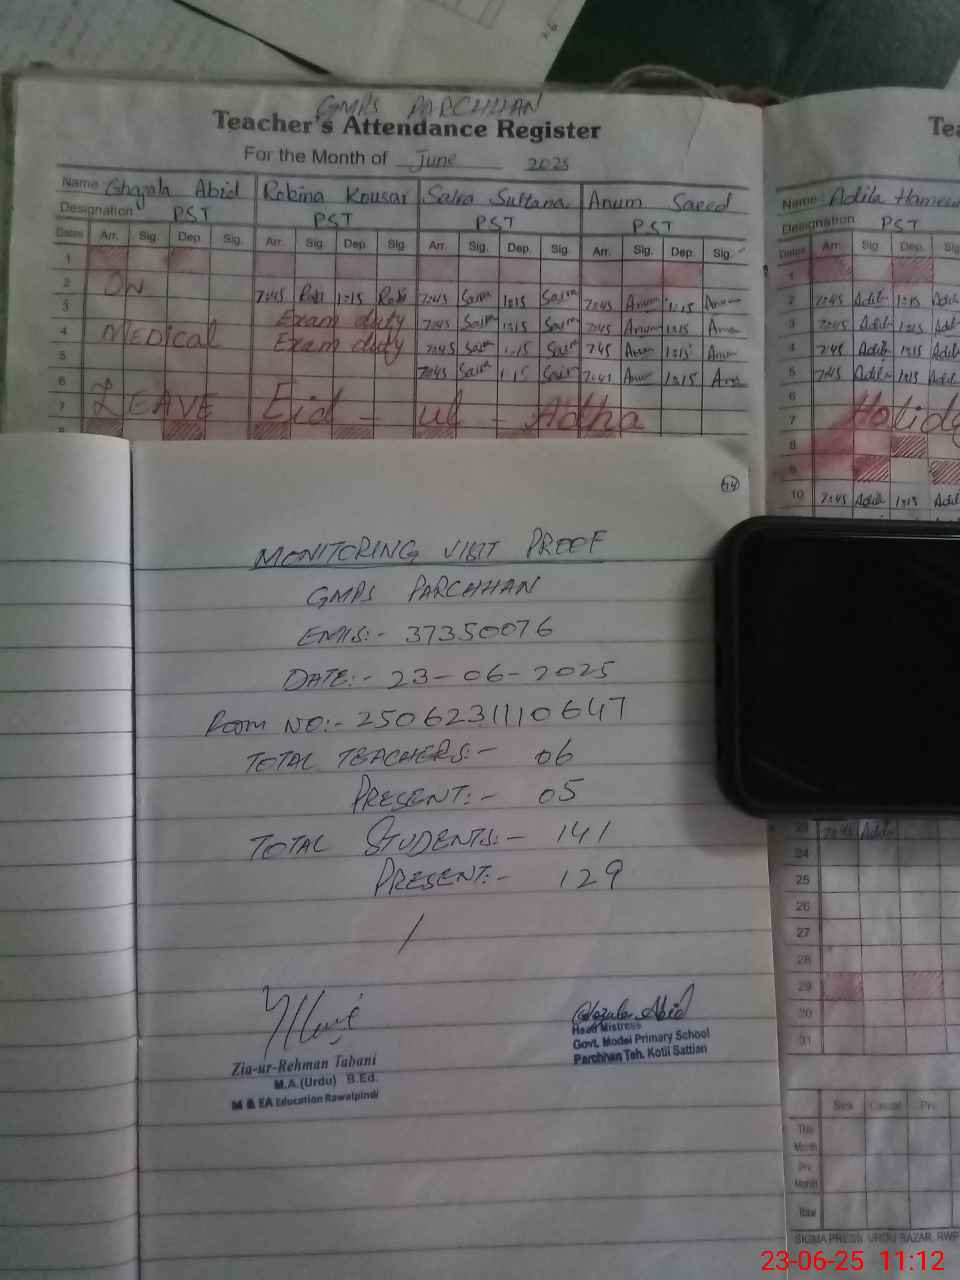 GMPS PARCHHAN
Teacher's Attendance Register
For the Month of June 2025
Name Ghazala Abid Robina Kousar Saira Sultana Anum Saeed
Designation PST PST PST PST
Dates Arr. Sig. Dep. Sig. Arr. Sig. Dep. Sig. Arr. Sig. Dep. Sig. Arr. Sig. Dep. Sig.
1
2 ON 7:45 1:15 7:45 Saira 1:15 Saira 7:45 Anum 1:15 Anum
3 Exam duty 7:45 Saira 1:15 Saira 7:45 Anum 1:15
4 MEDICAL Exam duty 7:45 1:15 7:45 Anum 1:15 Anum
5 7:45 Saira 1:15 Saira Anum 1:15
6
7 LEAVE Eid - ul - Adha
8
Name: Adila
Designation PST
Dates Arr. Sig. Dep.
1
2 7:45 Adila 1:15 Adil
3 7:45 Adila 1:15 Adil
4 7:45 Adila 1:15 Adil
5 7:45 Adila 1:15 Adil
6
7 Holid
8
9
10 7:45 Adil 1:15 Adil
23 7:45 Adil
24
25
26
27
28
29
30
31
Sick Casual Prv.
This Month
Prv. Month
Total
SIGMA PRESS URDU BAZAR, RWP
74
MONITORING VISIT PROOF
GMPS PARCHHAN
EMIS:- 37350076
DATE:- 23-06-2025
ROOM NO:- 2506231110647
TOTAL TEACHERS:- 06
PRESENT:- 05
TOTAL STUDENTS:- 141
PRESENT:- 129
Zia-ur-Rehman Tabani
M.A.(Urdu) B.Ed.
M & EA Education Rawalpindi
Ghazala Abid
Head Mistress
Govt. Model Primary School
Parchhan Teh. Kotli Sattian
23-06-25 11:12